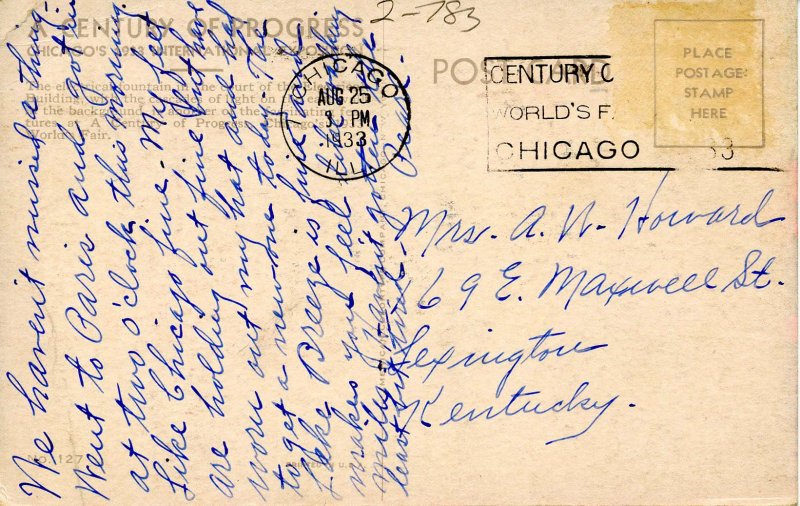 2-783
A CENTURY OF PROGRESS
CHICAGO'S 1933 INTERNATIONAL EXPOSITION
POST CARD
PLACE
POSTAGE
STAMP
HERE
CHICAGO
AUG 25
3 PM
1933
ILL.
CENTURY O
WORLD'S FA
CHICAGO 33
The electrical fountain in the Court of the Electrical
Building, with the cascades of light on
in the background
tures at A Century of Progress, Chicago's
World's Fair.
We haven't missed a thing -
Went to Paris and got in
at two o'clock this morning.
Like Chicago fine. My feet
are holding out fine but have
worn out my hat and had
to get a new one today. The
Lake Breeze is fine and
makes you feel like
least bit tired.
Mrs. A. W. Howard
69 E. Maxwell St.
Lexington
Kentucky.
No. 127
PRINTED IN U.S.A.